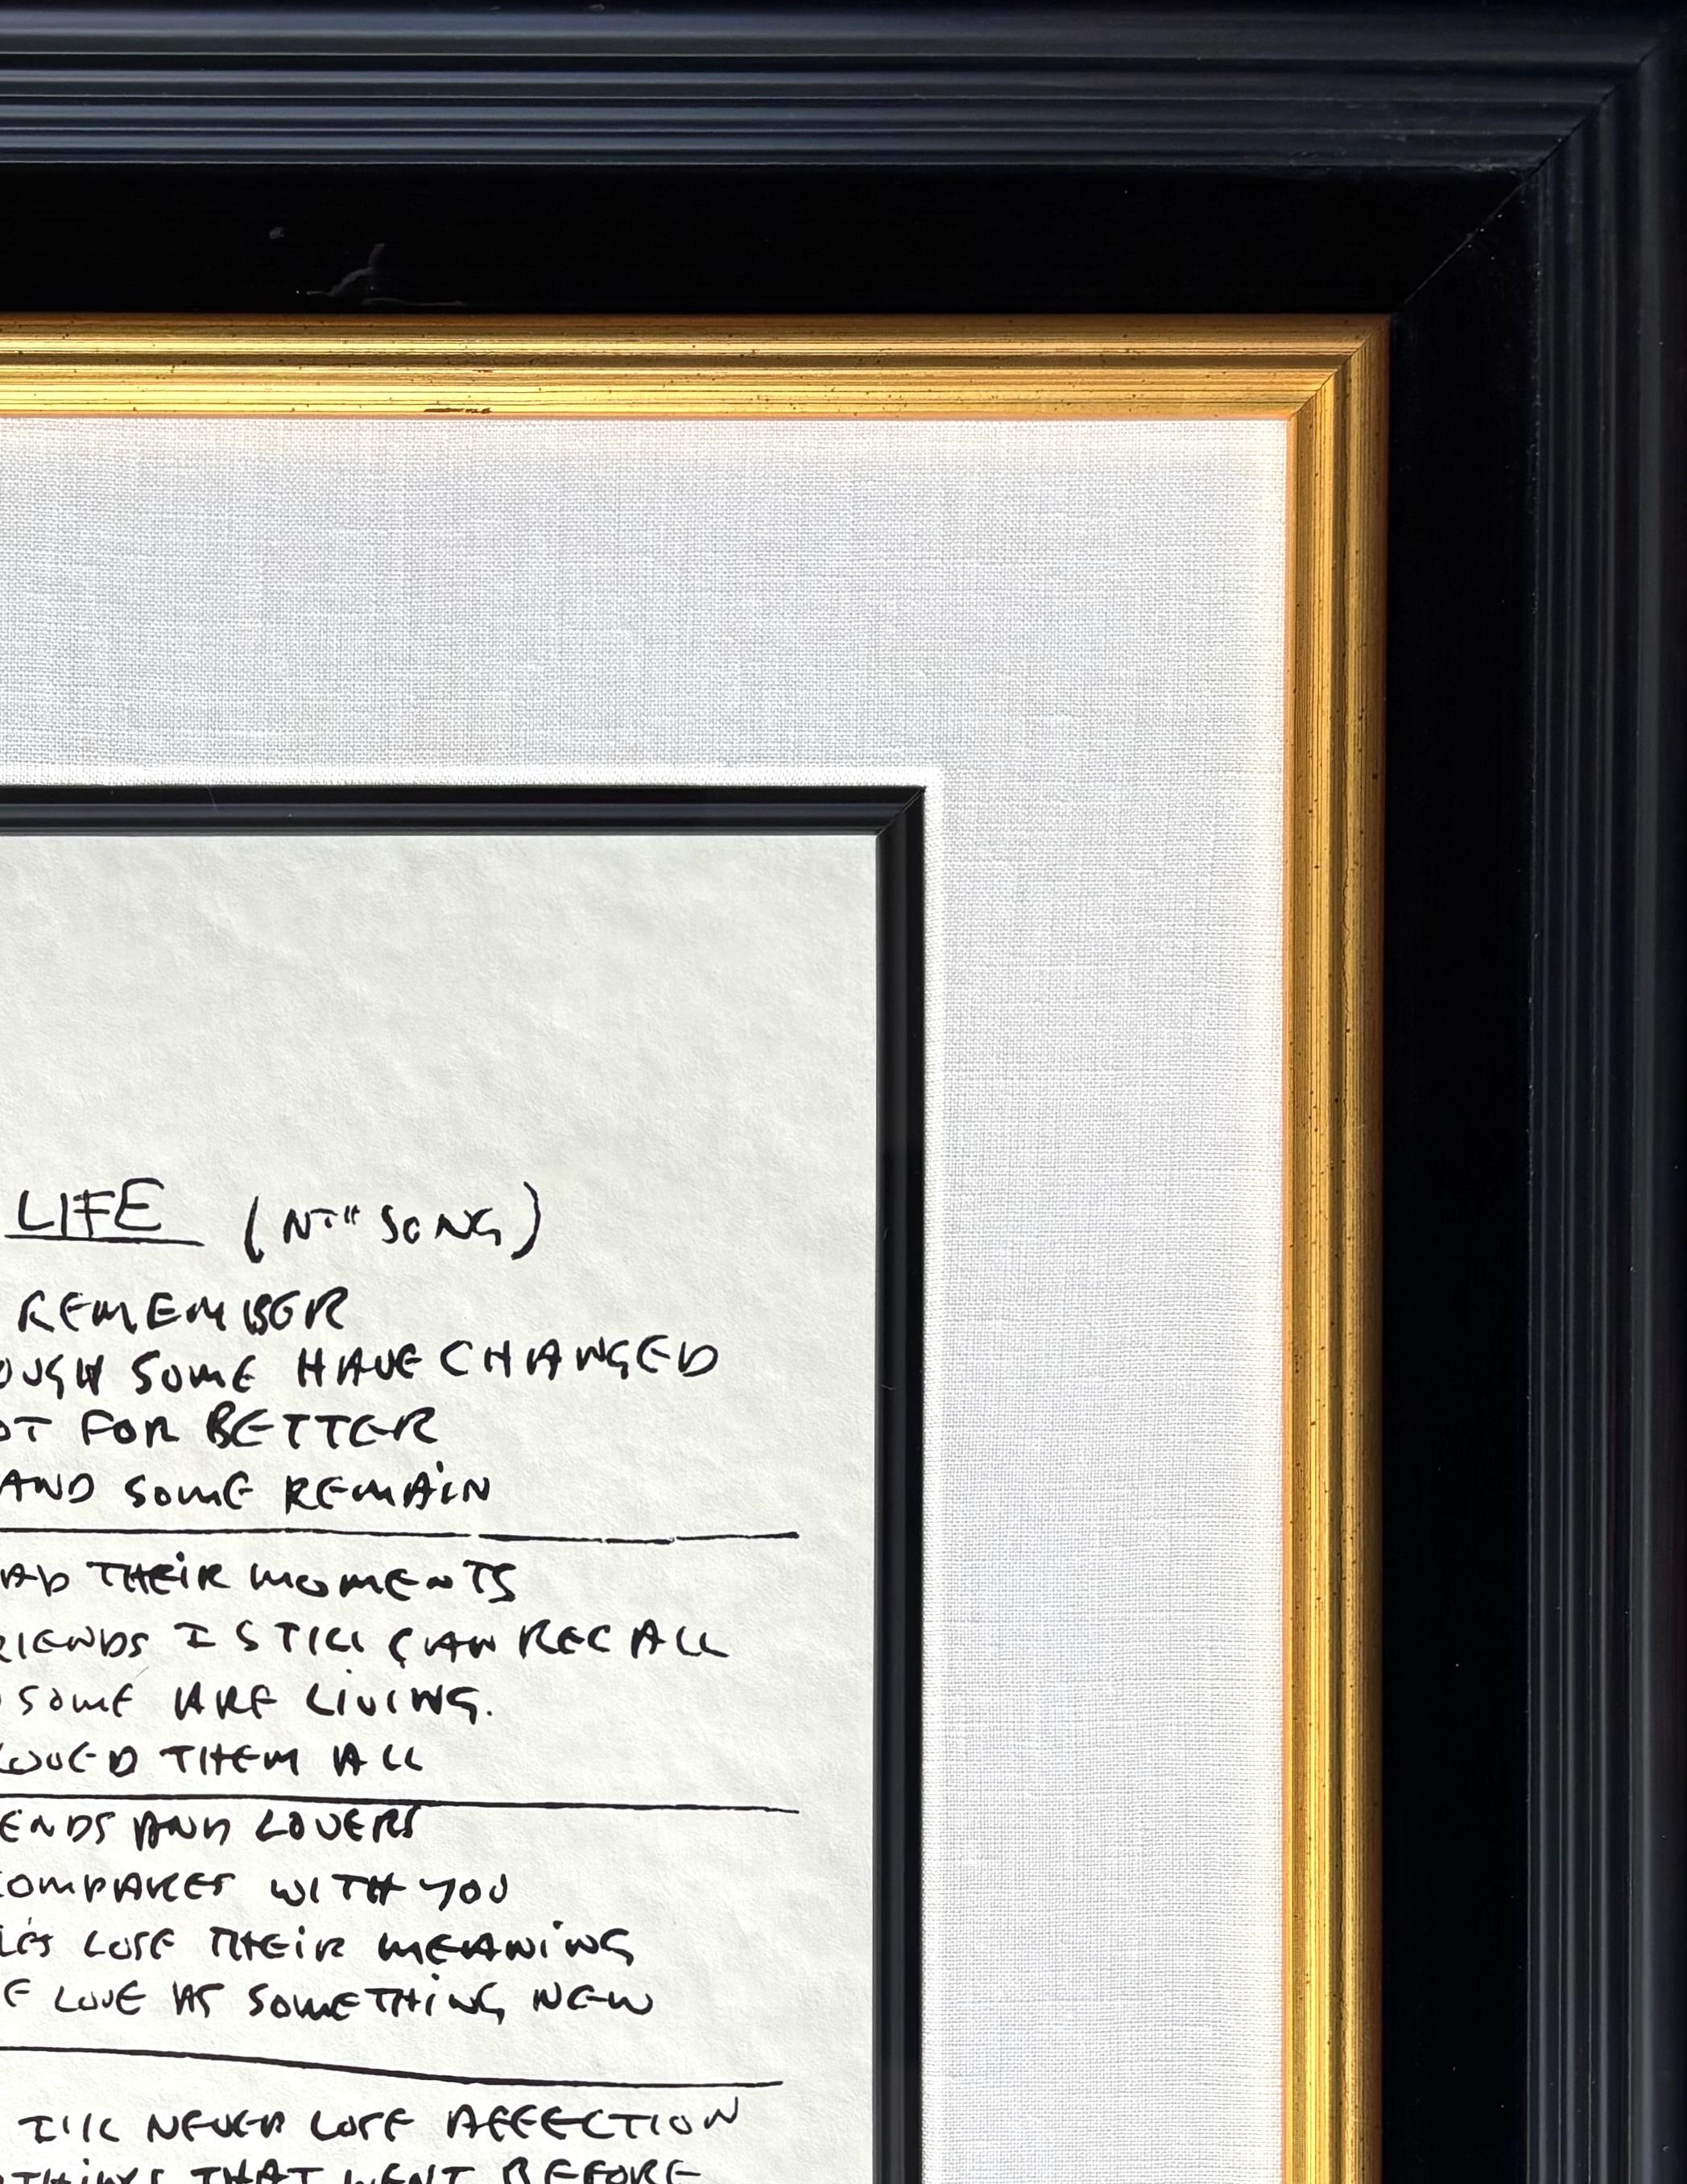 LIFE (NTH SONG)
REMEMBER
OUGH SOME HAVE CHANGED
OT FOR BETTER
AND SOME REMAIN
AD THEIR MOMENTS
RIENDS I STILL CAN RECALL
SOME ARE LIVING.
LOVED THEM ALL
ENDS AND LOVERS
COMPARES WITH YOU
IES LOSE THEIR MEANING
E LOVE AS SOMETHING NEW
I'LL NEVER LOSE AFFECTION
THINGS THAT WENT BEFORE